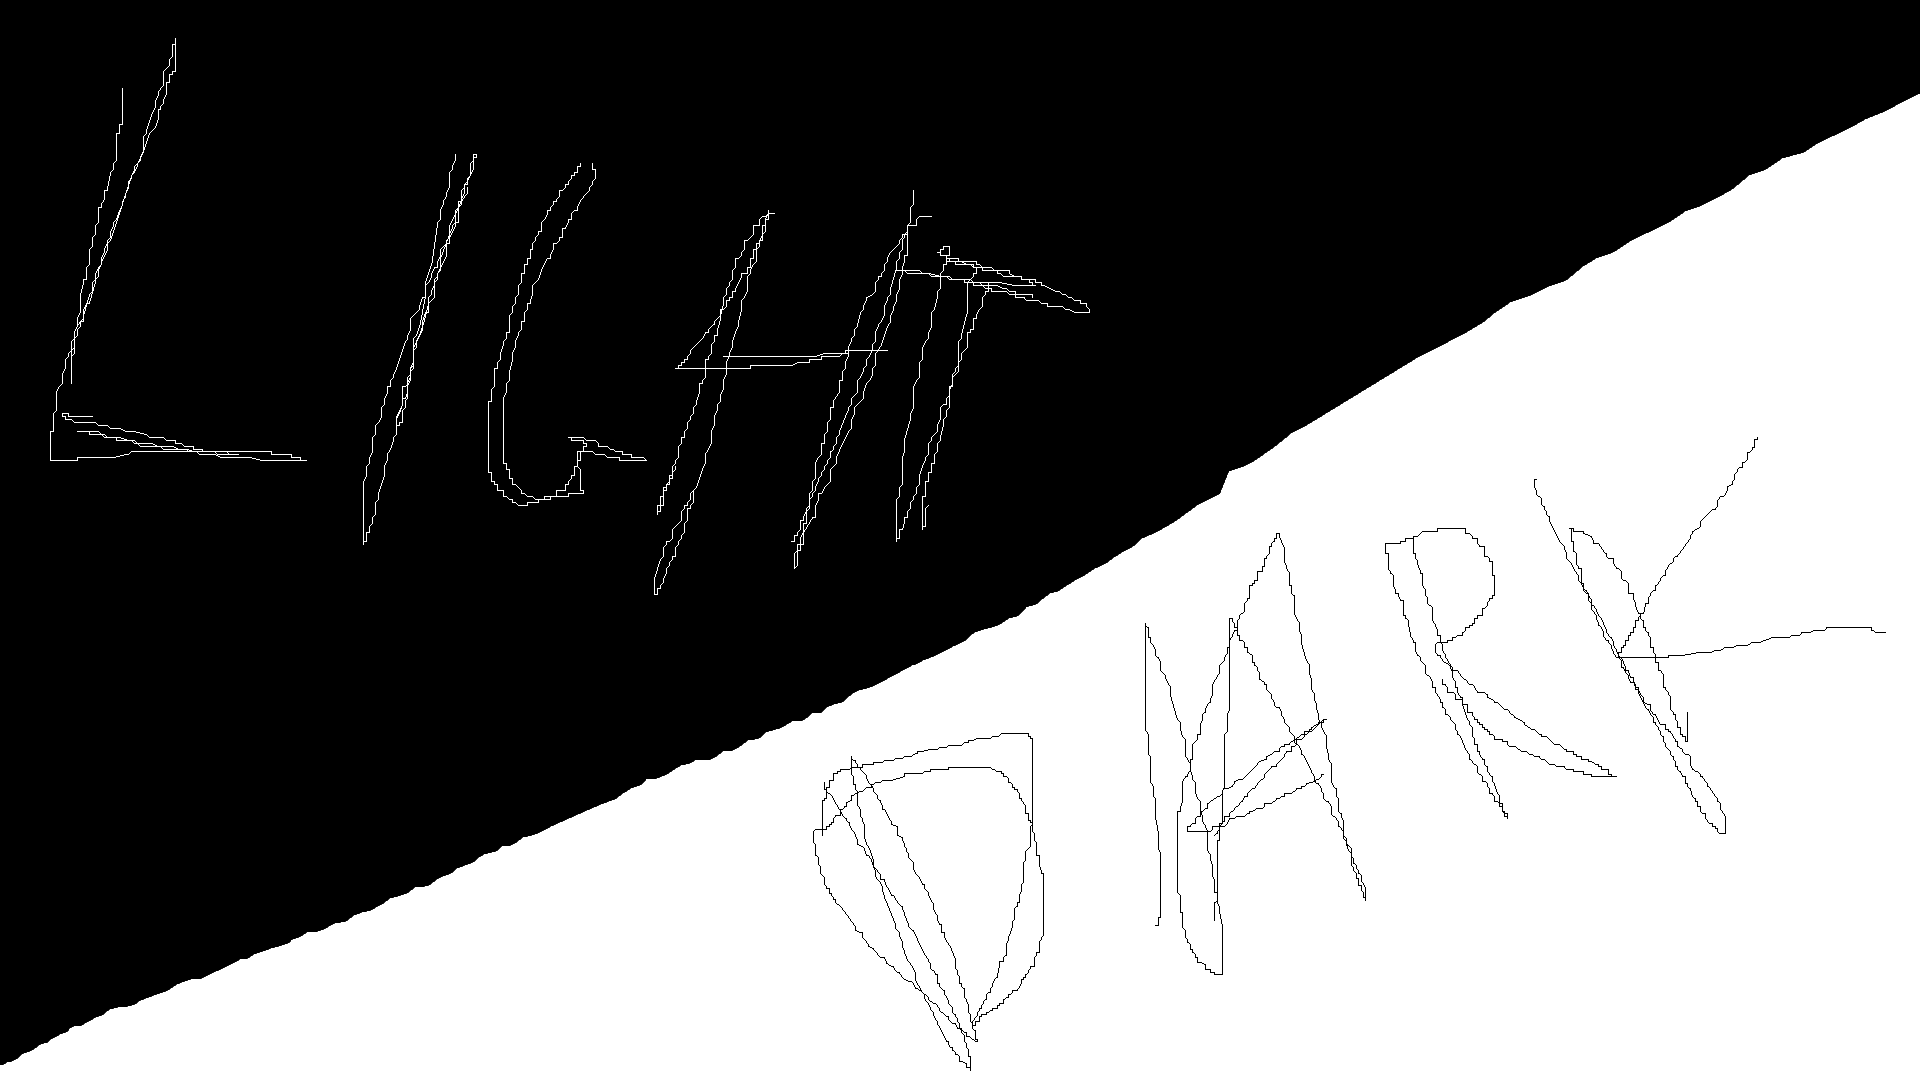 LIGHT
DARK